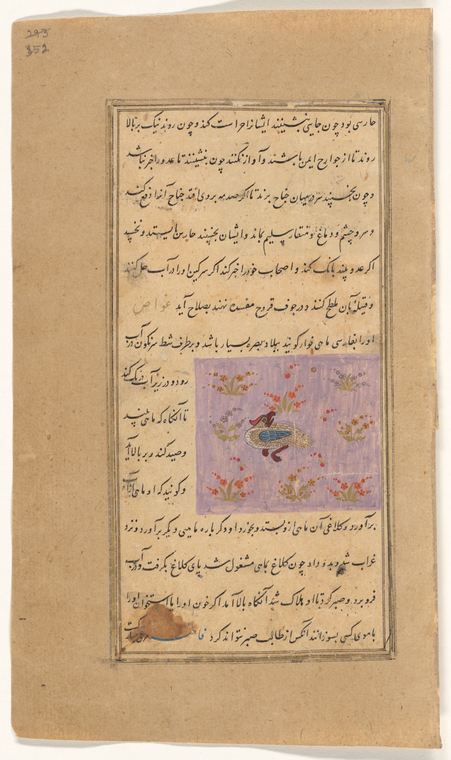 243
352
حارسی بود چون جایی بنشینند ایشانرا حراست کند و چون روند نیک بر بالا
روند تا از جوارح ایمن باشند و آواز نکنند چون بنشینند تا عدو را خبر نباشد
و چون بخسپند سر جناح برند تا اگر صدمه بروی افتد جناح آنرا دفع کند
و سر و چشم و دماغ و منقار سلیم بماند و ایشان بخسپند حارس بایستد و نخسپد
اگر عدو بیند بانک کند و اصحاب خود را خبر کند اگر سرکین او را در آب حل کنند
و فتیله بآن ملطخ کنند و در جوف قروح مفسده نهند بصلاح آید غواص
او را بفارسی ماهی خوار گویند ببلاد بصره بسیار باشد و بر طرف شط سرنگون در آب
رود و در زیر آب درنگ کند
تا آنگاه که ماهی بیند
و صید کند و بر بالا آید
و گویند که او ماهی از آب
بر آورد و کلاغی آن ماهی از وبستد و بخورد او دگر باره ماهی دیگر بر آورد و نزد
غراب شد و بدو داد چون کلاغ بماهی مشغول شد پای کلاغ بگرفت و در آب
فرو برد و صبر کرد تا او هلاک شد آنگاه بالا آمد اگر خون او را با استخوان او را
با موی کسی بسوزانند آنکس از طالب صبر نتواند کرد